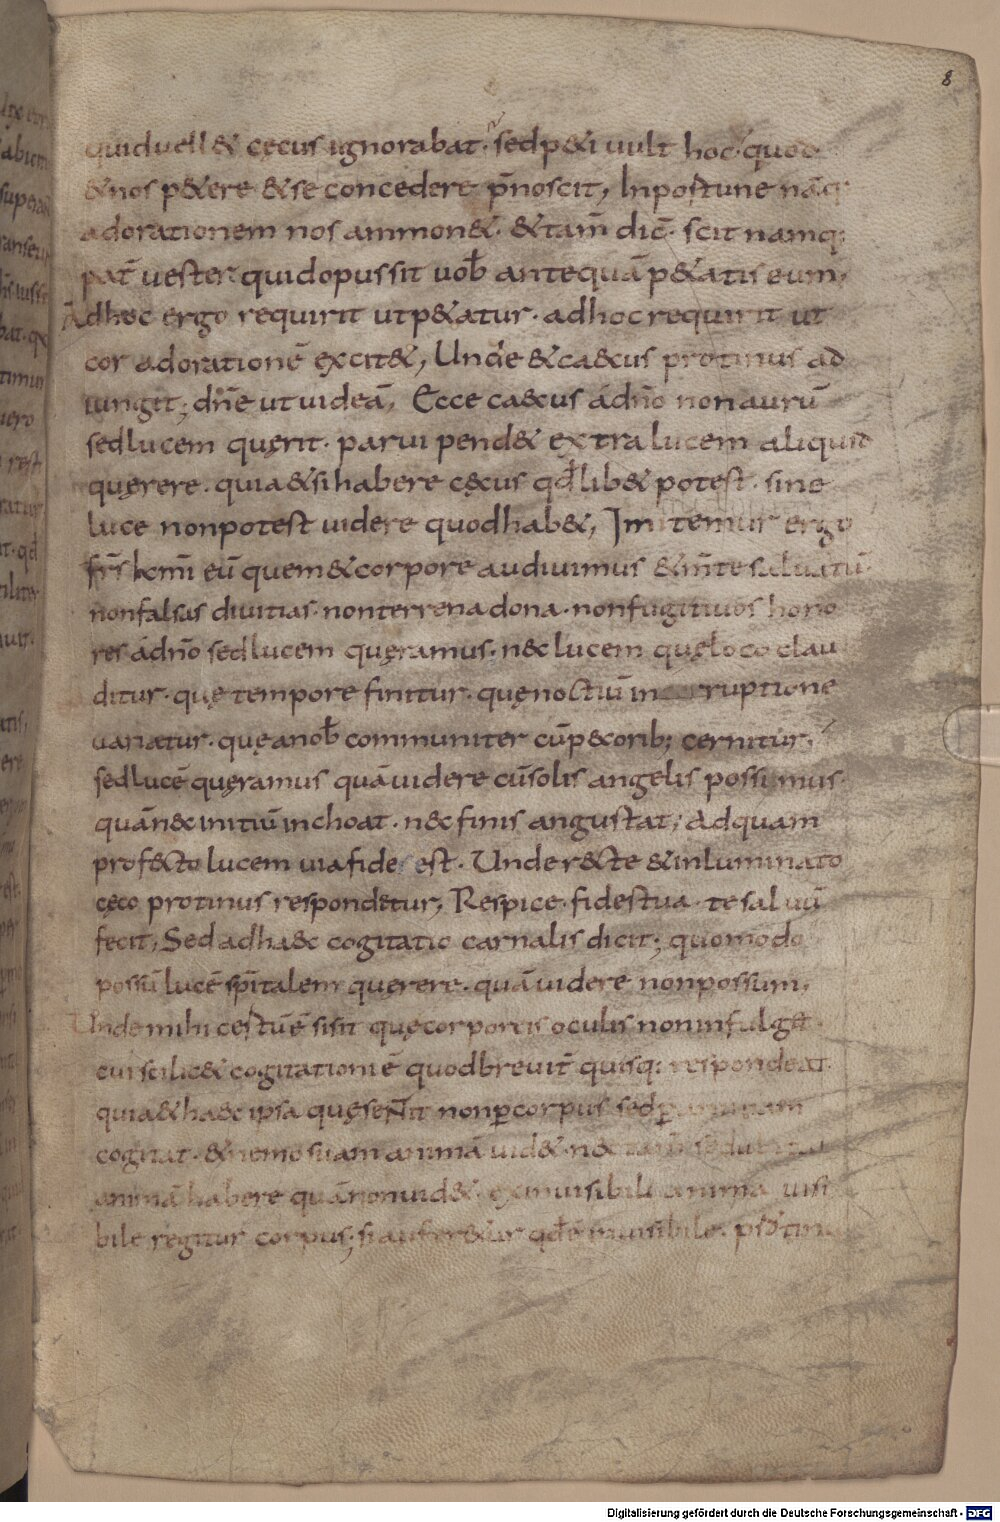 8
quiduell& cęcus ignorabat· sed p&i uult hoc quod
&nos p&ere &se concedere p̄noscit, Inportune nāq;
adorationem nos ammon&· &tam̄ dic̄· scit namq;
pat̄ uester quid opus sit uob̄ antequā p&atis eum,
Adhoc ergo requirit ut p&atur· adhoc requirit ut
cor adorationē excit&, Unde &caecus protinus ad
iungit; dn̄e ut uideā, Ecce caecus ádn̄o non aurū
sed lucem quęrit· parui pend& extra lucem aliquid
quęrere· quia &si habere cęcus qd̄ lib& potest· sine
luce non potest uidere quod hab&, Imitemur ergo
fr̄s kͬmi eū quem &corpore audiuimus &m̄te saluatū·
non falsas diuitias· non terrena dona· non fugitiuos hono
res ádn̄o sed lucem quęramus· nec lucem quę loco clau
ditur· quę tempore finitur· quę noctiū in ruptione
uariatur· quę anob̄ communiter cū p&corib; cernitur,
sed lucē quęramus quā uidere cū solis angelis possumus·
quā nec initiū inchoat· nec finis angustat; Ad quam
prof&to lucem uia fides est· Unde r&te &inluminato
cęco protinus respondetur, Respice· fides tua· te saluū
fecit, Sed adhaec cogitatio carnalis dicit; quomodo
possū lucē sp̄italem quęrere· quā uidere non possum,
Unde mihi certū ē si sit quę corporeis oculis non infulg&·
cui scilic& cogitationi ē quod breuit̄ quisq; respondeat·
quia &haec ipsa quę sentit non p̱ corpus sed p̱ animam
cogitat· &nemo suam animā uid&· nec tam̄ se dubitat
animā habere quā non uid&· ex inuisibili anima uisi
bile regitur corpus; si aufer&ur qd̄ ē inuisibile· protinus
Digitalisierung gefördert durch die Deutsche Forschungsgemeinschaft - DFG